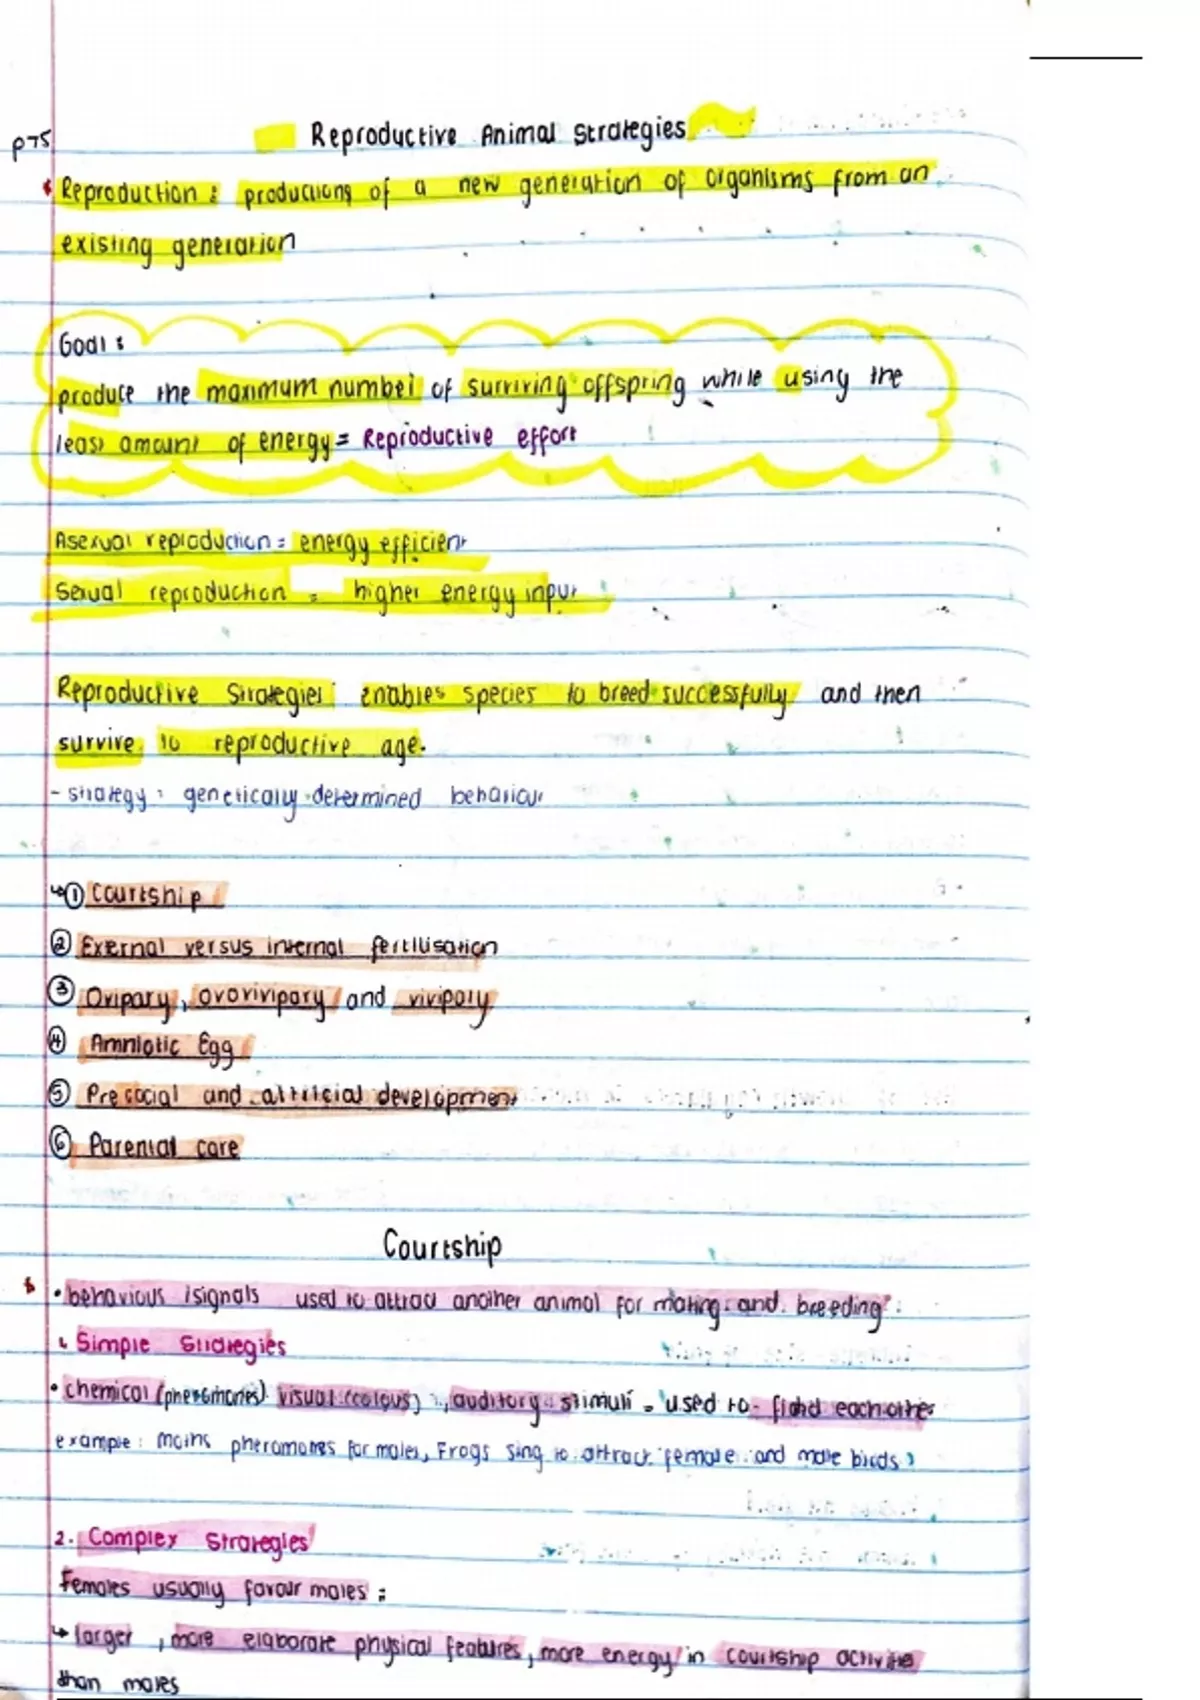 p75
Reproductive Animal Strategies
Reproduction : productions of a new generation of organisms from an
existing generation
Goal :
produce the maximum number of surviving offspring while using the
least amount of energy = Reproductive effort
Asexual reproduction = energy efficient
Sexual reproduction = higher energy input
Reproductive Strategies : enables species to breed successfully and then
survive to reproductive age.
- strategy : geneticaly determined behaviour
↳ ① Courtship
② External versus internal fertilisation
③ Ovipary, ovovivipary and vivipary
④ Amniotic Egg
⑤ Precocial and altricial development
⑥ Parental care
Courtship
• behavious /signals used to attract another animal for mating and breeding
Simple Strategies
• chemical (pheromones) visual (colous), auditory stimuli = used to find each other
example : moths pheromones for males, Frogs sing to attract female and male birds
2. Complex Strategies
Females usually favour males :
↳ larger, more elaborate physical features, more energy in courtship activities
than males